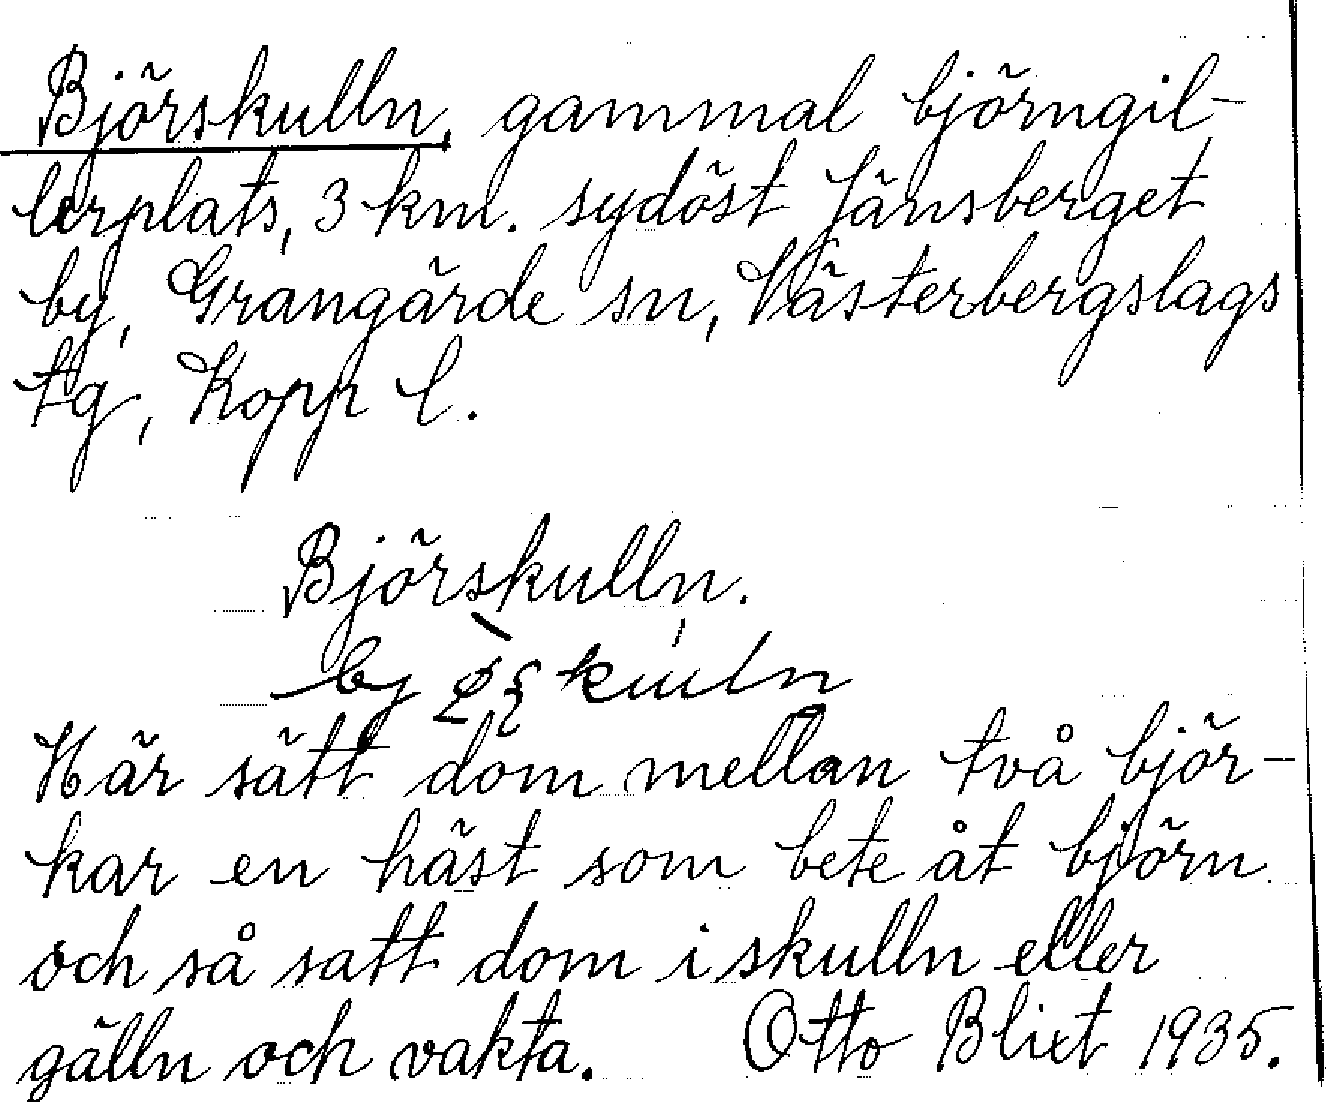 Björskulln, gammal björngil-
lerplats, 3 km. sydöst Jänsberget
by, Grangärde sn, Västerbergslags
tg, Kopp l.
Björskulln.
Här sätt dom mellan två björ-
kar en häst som bete åt björn
och så satt dom i skulln eller
gälln och vakta. Otto Blixt 1935.